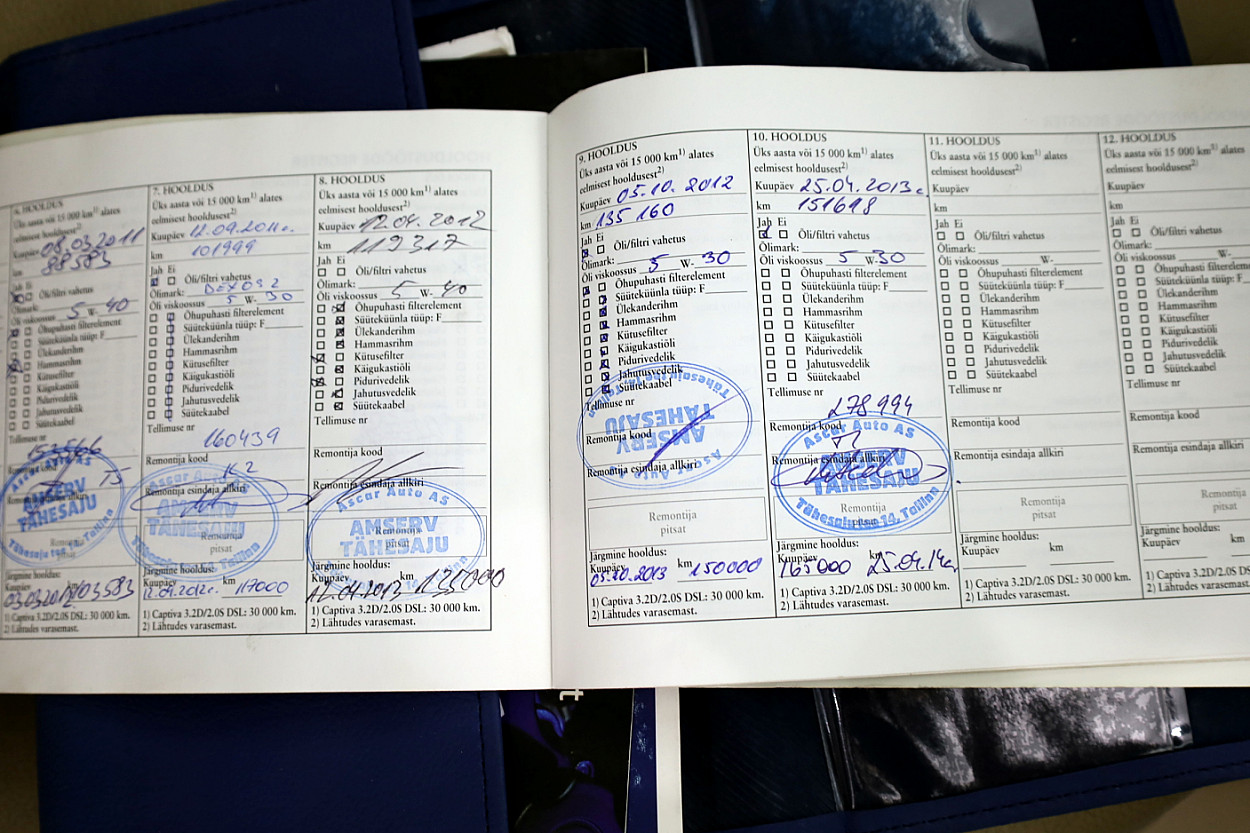 6. HOOLDUS
Üks aasta või 15 000 km1) alates
eelmisest hooldusest2)
Kuupäev 08.03.2011
km 88583
Jah Ei
Õli/filtri vahetus
Õlimark:
Õli viskoossus 5 W- 40
Õhupuhasti filterelement
Süüteküünla tüüp: F
Ülekanderihm
Hammasrihm
Kütusefilter
Käigukastiõli
Pidurivedelik
Jahutusvedelik
Süütekaabel
Tellimuse nr
AMSERV
TÄHESAJU
Järgmine hooldus:
Kuupäev km
103583
1) Captiva 3.2D/2.0S DSL: 30 000 km.
2) Lähtudes varasemast.
7. HOOLDUS
Üks aasta või 15 000 km1) alates
eelmisest hooldusest2)
Kuupäev 12.09.2011.
km 101999
Jah Ei
Õli/filtri vahetus
Õlimark: DEXOS 2
Õli viskoossus 5 W- 30
Õhupuhasti filterelement
Süüteküünla tüüp: F
Ülekanderihm
Hammasrihm
Kütusefilter
Käigukastiõli
Pidurivedelik
Jahutusvedelik
Süütekaabel
Tellimuse nr
160439
Remontija kood
K2
Remontija esindaja allkiri
Ascar Auto AS
AMSERV
TÄHESAJU
Remontija
pitsat
Järgmine hooldus:
Kuupäev km
12.09.2012. 117000
1) Captiva 3.2D/2.0S DSL: 30 000 km.
2) Lähtudes varasemast.
8. HOOLDUS
Üks aasta või 15 000 km1) alates
eelmisest hooldusest2)
Kuupäev 12.04.2012
km 119317
Jah Ei
Õli/filtri vahetus
Õlimark:
Õli viskoossus 5 W- 40
Õhupuhasti filterelement
Süüteküünla tüüp: F
Ülekanderihm
Hammasrihm
Kütusefilter
Käigukastiõli
Pidurivedelik
Jahutusvedelik
Süütekaabel
Tellimuse nr
Remontija kood
Remontija esindaja allkiri
Ascar Auto AS
AMSERV
TÄHESAJU
Remontija
pitsat
Järgmine hooldus:
Kuupäev km
12.04.2013 135000
1) Captiva 3.2D/2.0S DSL: 30 000 km.
2) Lähtudes varasemast.
9. HOOLDUS
Üks aasta või 15 000 km1) alates
eelmisest hooldusest2)
Kuupäev 05.10.2012
km 135 160
Jah Ei
Õli/filtri vahetus
Õlimark:
Õli viskoossus 5 W- 30
Õhupuhasti filterelement
Süüteküünla tüüp: F
Ülekanderihm
Hammasrihm
Kütusefilter
Käigukastiõli
Pidurivedelik
Jahutusvedelik
Süütekaabel
Remontija kood
Remontija esindaja allkiri
Ascar Auto AS
AMSERV
TÄHESAJU
Remontija
pitsat
Järgmine hooldus:
Kuupäev km
05.10.2013 150000
1) Captiva 3.2D/2.0S DSL: 30 000 km.
2) Lähtudes varasemast.
10. HOOLDUS
Üks aasta või 15 000 km1) alates
eelmisest hooldusest2)
Kuupäev 25.04.2013
km 151618
Jah Ei
Õli/filtri vahetus
Õlimark:
Õli viskoossus 5 W- 30
Õhupuhasti filterelement
Süüteküünla tüüp: F
Ülekanderihm
Hammasrihm
Kütusefilter
Käigukastiõli
Pidurivedelik
Jahutusvedelik
Süütekaabel
Tellimuse nr
278994
Remontija kood
Remontija esindaja allkiri
Ascar Auto AS
AMSERV
TÄHESAJU
Tähesaju tee 14, Tallinn
Remontija
pitsat
Järgmine hooldus:
Kuupäev km
165000 25.04.14
1) Captiva 3.2D/2.0S DSL: 30 000 km.
2) Lähtudes varasemast.
11. HOOLDUS
Üks aasta või 15 000 km1) alates
eelmisest hooldusest2)
Kuupäev
km
Jah Ei
Õli/filtri vahetus
Õlimark:
Õli viskoossus W-
Õhupuhasti filterelement
Süüteküünla tüüp: F
Ülekanderihm
Hammasrihm
Kütusefilter
Käigukastiõli
Pidurivedelik
Jahutusvedelik
Süütekaabel
Tellimuse nr
Remontija kood
Remontija esindaja allkiri
Remontija
pitsat
Järgmine hooldus:
Kuupäev km
1) Captiva 3.2D/2.0S DSL: 30 000 km.
2) Lähtudes varasemast.
12. HOOLDUS
Üks aasta või 15 000 km1) alates
eelmisest hooldusest2)
Kuupäev
km
Jah Ei
Õli/filtri vahetus
Õlimark:
Õli viskoossus W-
Õhupuhasti filterelement
Süüteküünla tüüp: F
Ülekanderihm
Hammasrihm
Kütusefilter
Käigukastiõli
Pidurivedelik
Jahutusvedelik
Süütekaabel
Tellimuse nr
Remontija kood
Remontija esindaja allkiri
Remontija
pitsat
Järgmine hooldus:
Kuupäev km
1) Captiva 3.2D/2.0S DSL: 30 000
2) Lähtudes varasemast.